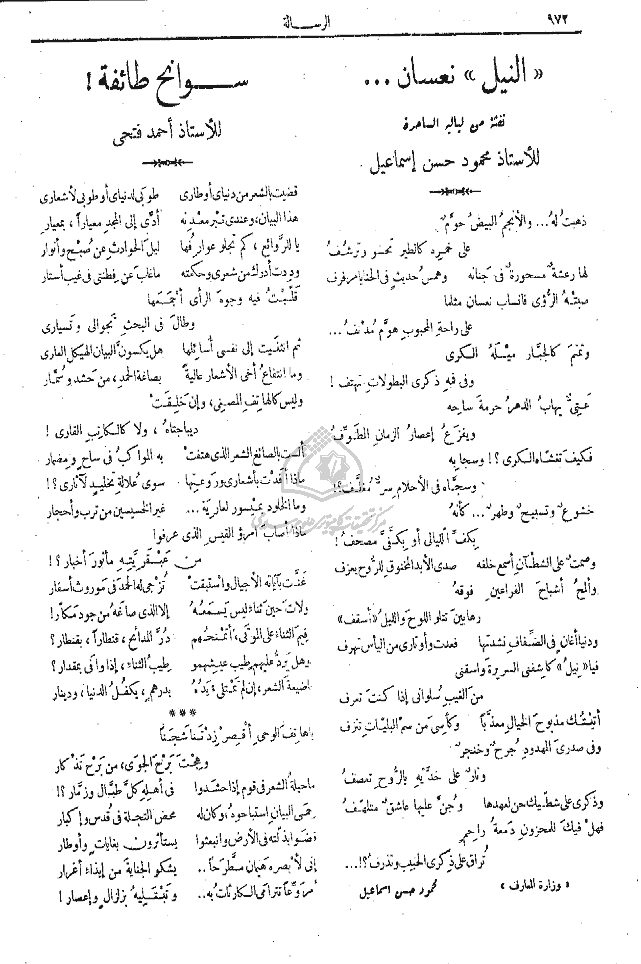 ٩٧٢
الرسالة
« النيل » نعسان ...
نفثة من لياليه الساحرة
للأستاذ محمود حسن إسماعيل
ذهبتُ لهُ... والأنجمُ البيضُ حوَّمٌ
على خميره كالطير تحسو وترشفُ
لها رعشةٌ مسحورةٌ فى جنانه وهمسُ حديثٍ فى الحنايا مرفرف
سبتْهُ الرُّؤى فانساب نعسان مثلما
على راحةِ المحبوبِ هوَّم مُدْنَفُ...
وتمتم كالجبَّار مَيَّلهُ الكرى
وفى فيه ذكرى البطولاتِ تهتف !
عَتِىٌّ يهابُ الدهرُ حرمةَ ساحِه
ويفزَعُ إعصارُ الزمانِ المطوِّفُ
فكيف تغشاه الكرى؟! وسجا به
وسجَّاه فى الأحلام سرٌّ مُغلَّف؟!
خشوعٌ وتسبيحٌ وطهرٌ... كأنهُ
بكفِّ الليالى أو بكفِّى مصحفُ!
وصمتٌ على الشطآنِ أسمع خلفه صدى الأبد المخنوق للرُّوح يعزف
وألمحُ أشباحَ الفراعينِ فوقهُ
رهابين تتلو اللوح والليلُ «أسقف»
ودنيا أغانٍ فى الضِّفافِ نشدتها فعدت وأوتارى من اليأس تهرف
فيا «نيلُ» كاشفنى السريرة واسقنى
من الغيبِ سلوانى إذا كنت تعرف
أتيتُك مذبوح الخيال معذَّباً وكأسى من سم البليَّات تنزف
وفى صدرىَ المهدودِ جُرحٌ وخنجرٌ
ونارٌ على خدَّيْه بالرُّوحِ تعصفُ
وذكرى على شطَّيك حن لعهدها وجُنَّ عليها عاشقٌ متلهِّفُ
فهلْ فيكَ للمحزونِ دمعةُ راحمٍ
تُراق على ذكرى الحبيب وتذرفُ؟!...
« وزارة المعارف » محمود حسن اسماعيل
سوانح طائفة !
للأستاذ أحمد فتحى
قضيت بالشعر من دنياىَ أوطارى طوبى لدنياىَ أو طوبى لأشعارى
هذا البيان، وعندى تبر معدنه أدَّى إلى المجدِ معياراً، بمعيارِ
يا للرَّوائع، كم تجلو عوارفُها ليلَ الحوادثِ عن صُبحٍ وأنوارِ
وددت أدرك من شعرى وحكمته ما غاب عن فطنتى فى غيب أستار
قلَّبتُ فيه وجوهَ الرأى أجمعَها
وطالَ فى البحثِ تجوالى وتسيارى
ثم انثنيت إلى نفسى أسائلها هل يكسون البيان الهيكل العارى
وما انتفاعُ أخى الأشعار عاليةً بصاغة الحمد، من حشد وسُمَّار
وليس كالهاتف المصبنى، وإن خلِقَتْ
ديباجتاه، ولا كالكاتبِ القارى !
ألست بالصائغ الشعرَ الذى هتفتْ به المواكبُ فى ساحٍ ومضمار
ماذا أفدتُ بأشعارى وروعتها سوى علالة تخليدٍ لآثارى؟!
وما الخلود بميسور لعارية... غير الخسيسين من تربٍ وأحجار
ماذا أصاب امرؤ القيس الذى عرفوا
من عبقريَّته مأثورَ أخبار؟!
غنَّت بآياته الأجيالُ واستبقت تزجى له الحمد فى موروث أسفار
ولات حين ثناء ليس يسمعهُ إلا الذى صاغهُ من جود مكثار!
فيمَ الثناء على الموتى، أتمنحُهم دُرَّ المدائح، قنطاراً، بقنطار؟
وهل يردُّ عليهم طيب عيشهمو طيبُ الثناء، إذا وافى بمقدار؟
يا ضيعةَ الشعر، إن لم تمتلئ يدهُ بدرهمٍ، يكفلُ الدنيا، ودينار
***
يا هاتفَ الوحى أقصِر زدتَنا شجناً
وهِجتَ بَرحَ الجوى، من بَرحِ تَذكار
ما حيلة الشعر فى قوم إذا حشدوا فى أهله كلَّ طبَّال وزمَّار؟!
حِمى البيان استباحوه، وكان له محض التجلة فى قُدس وإكبار
فضوا بذلته فى الأرض وانبعثوا يستأثرون بغاياتٍ وأوطار
إنى لأبصره هيمان مطَّرحاً.. يشكو الجناية من إيذاء أغرار
مروَّعاً تترامى الكارثاتُ به.. وتبتليه بزلزالٍ وإعصار !